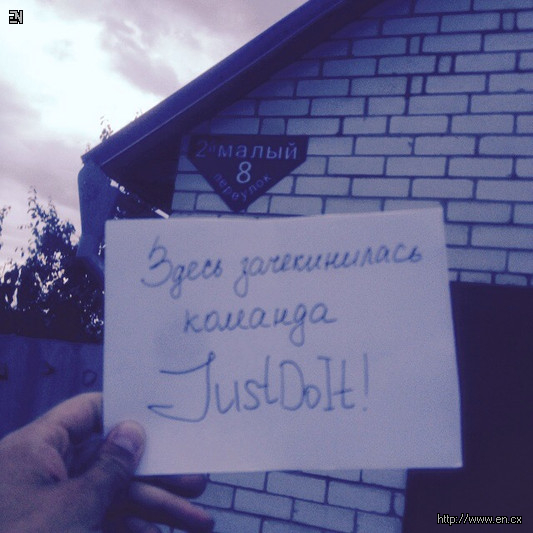 EN
2й малый
8
переулок
Здесь зачекинилась
команда
JustDoIt!
http://www.en.cx